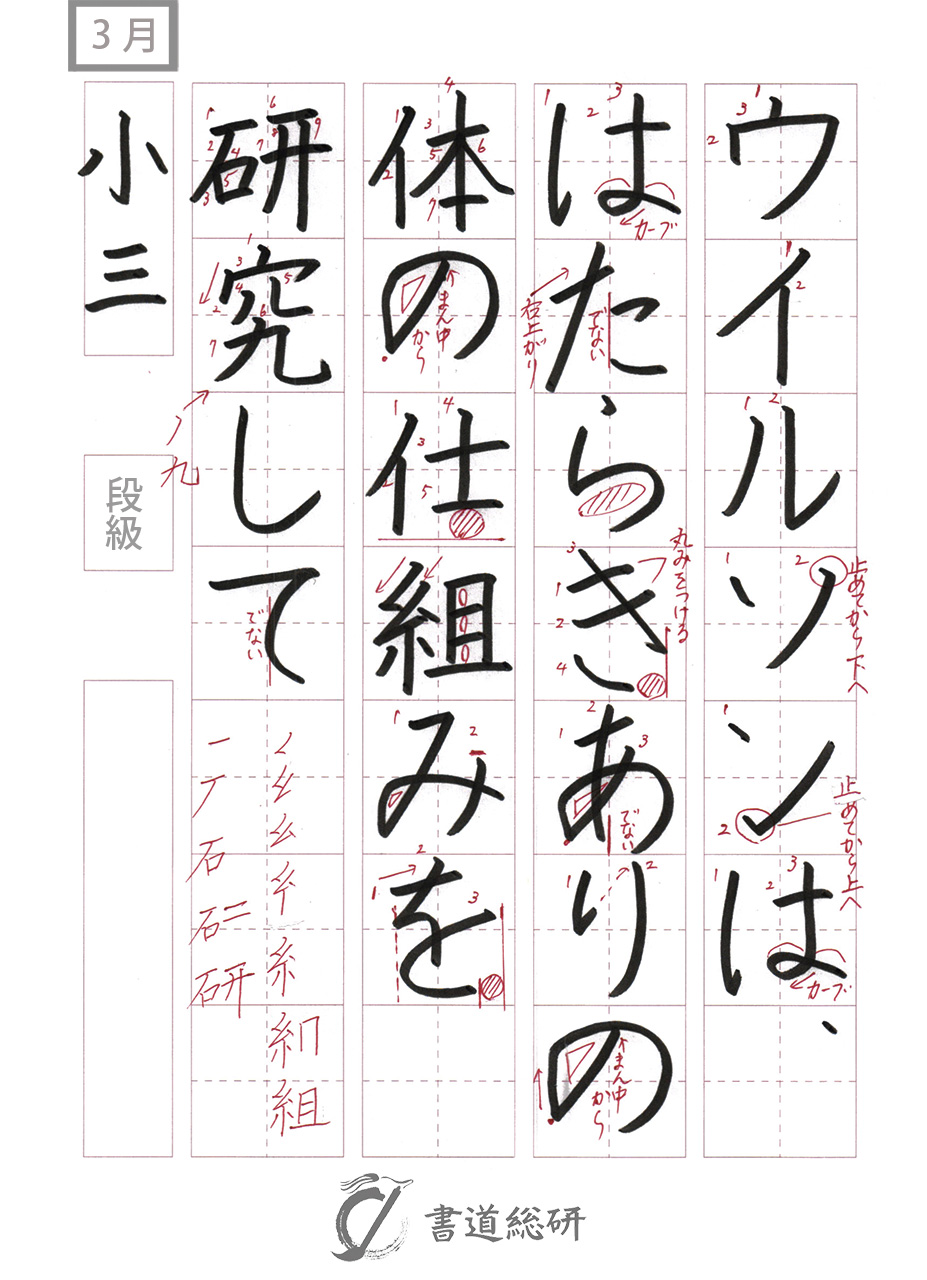 3月
ウイルソンは、
はたらきありの
体の仕組みを
研究して
小三
段級
止めてから下へ
止めてから上へ
カーブ
カーブ
右上がり
でない
丸みをつける
でない
まん中から
まん中から
でない
ノ九
く 幺 幺 糸 糸 組
一 丆 石 研
書道総研